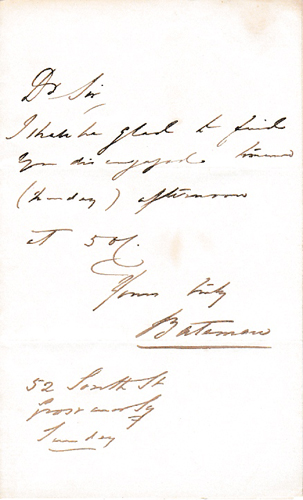 Dr Sir,
I shall be glad to find
you disengaged
(Monday) afternoon
at 5 o/c.
Yours truly
Bateman
52 South St
Grosvenor Sq
Sunday